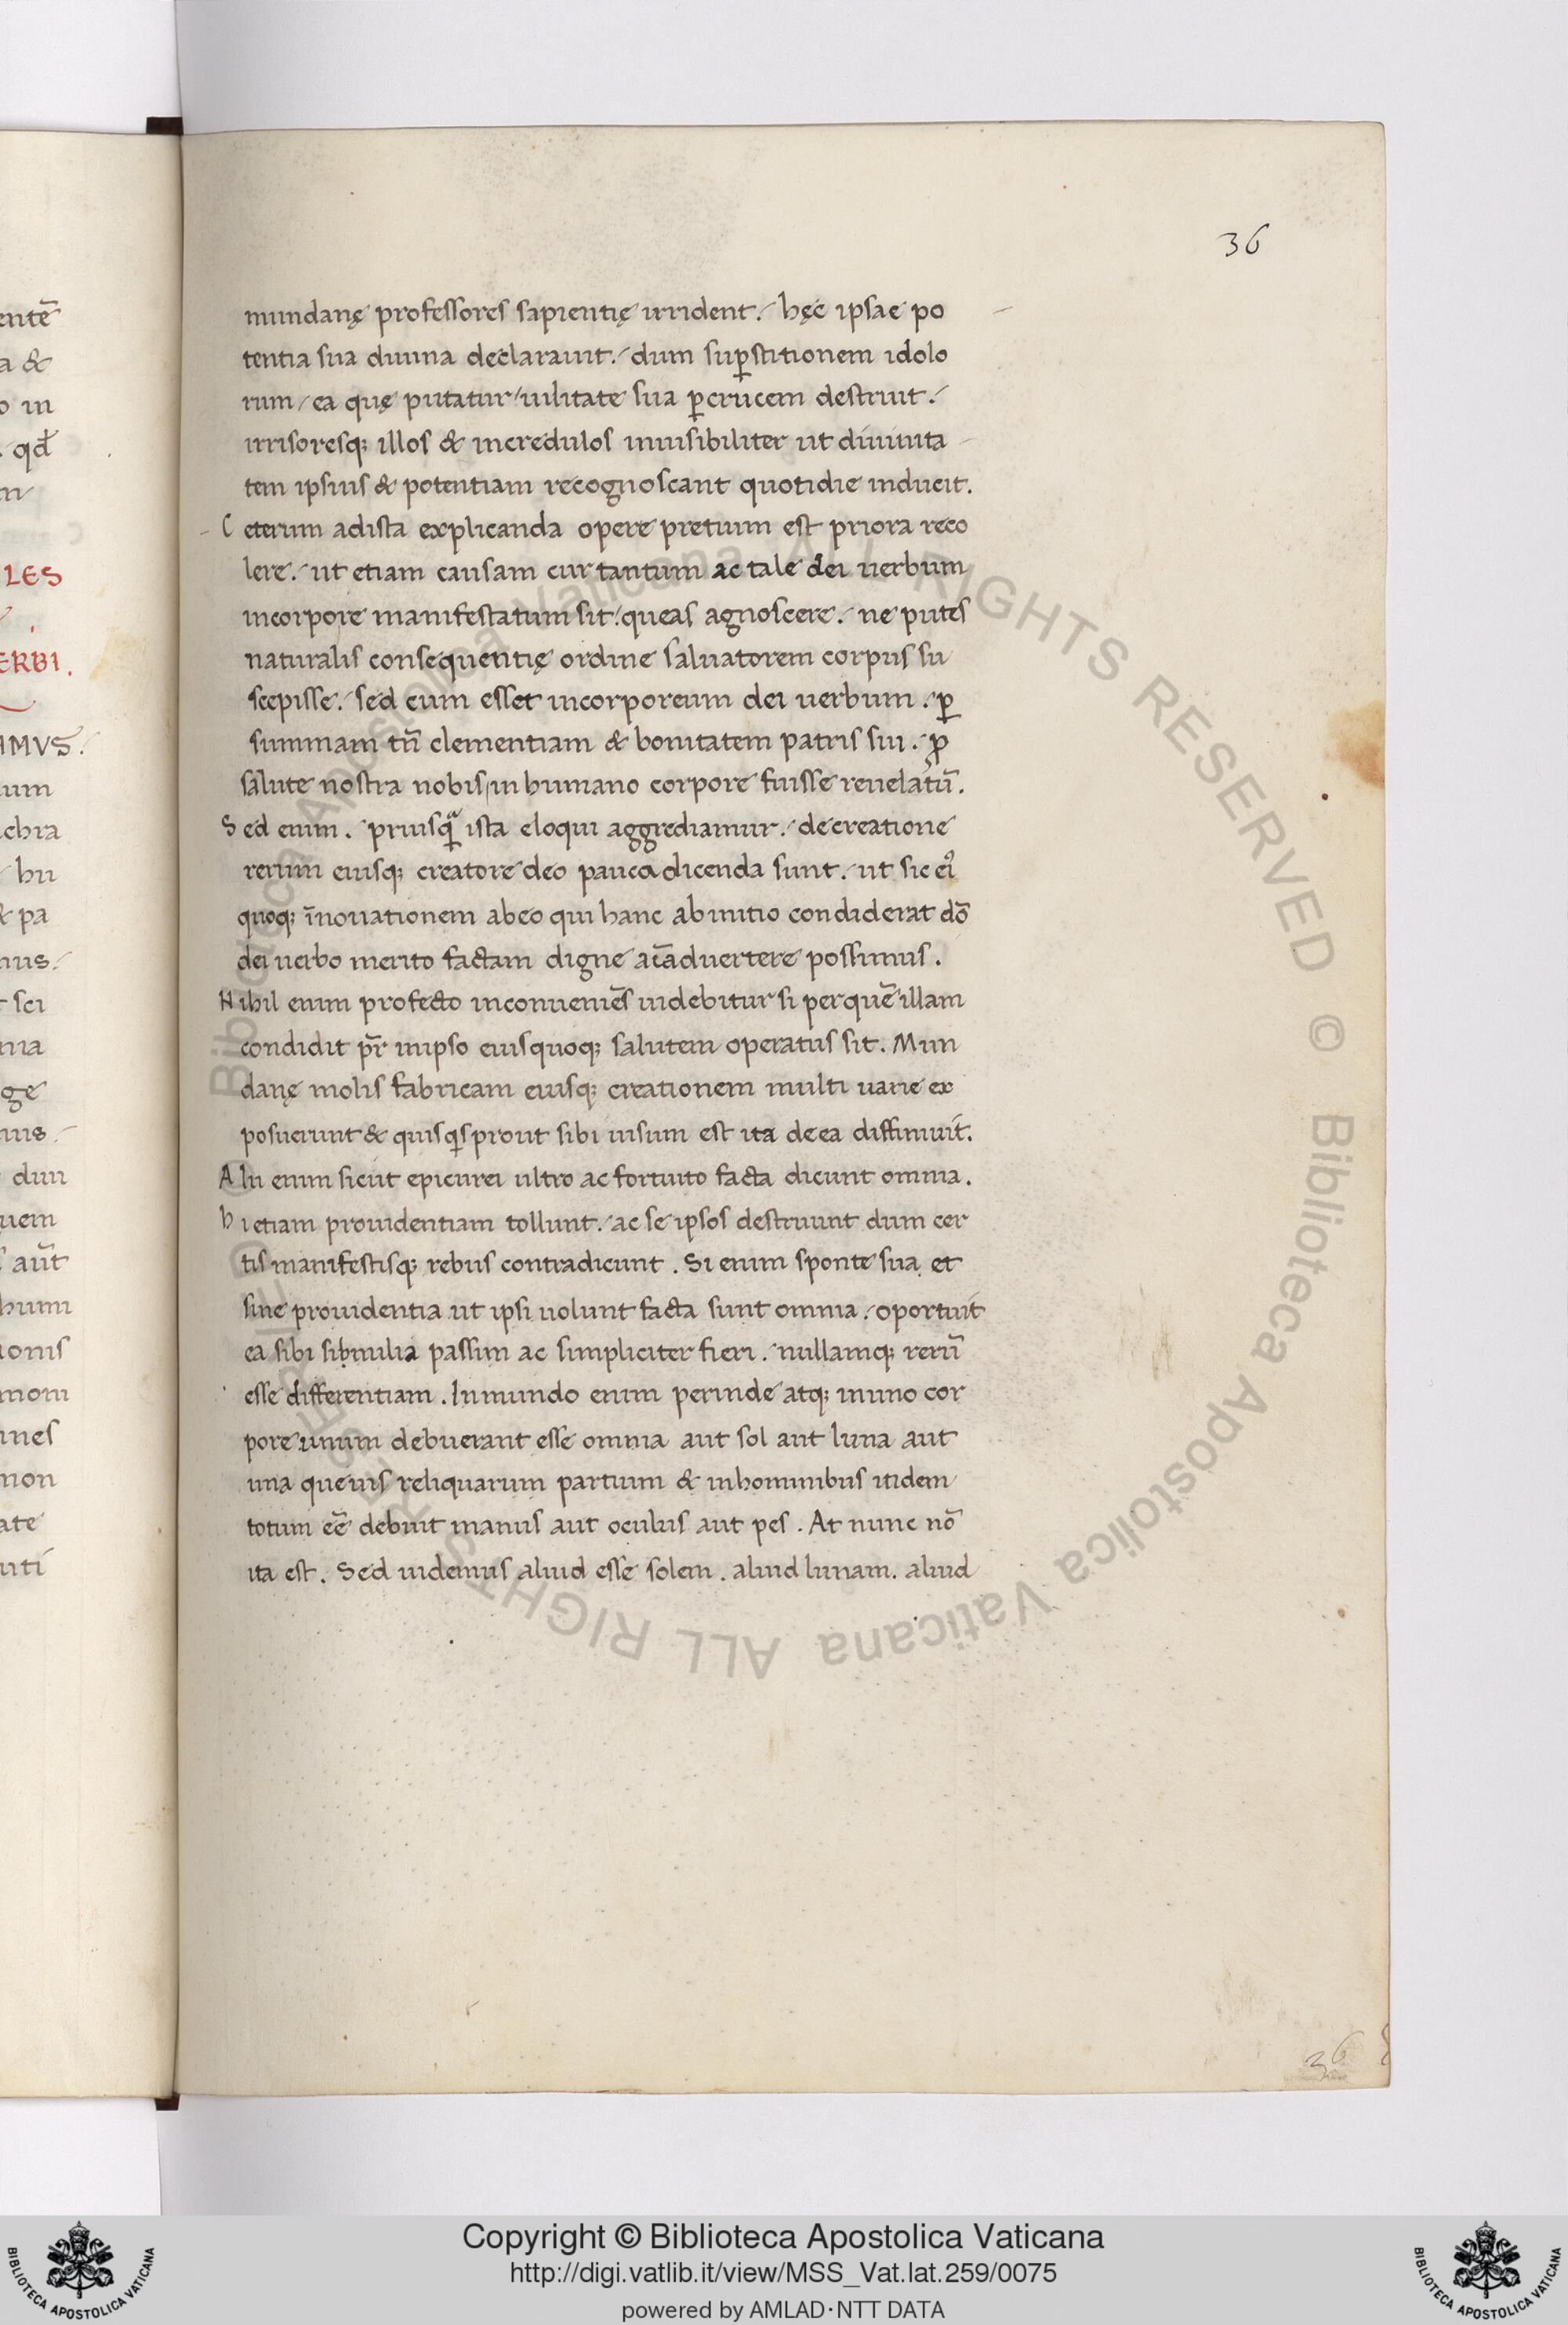 36
mundanę professores sapientię irrident. hęc ipsae po
tentia sua diuina declarauit. dum sup̱stitionem idolo
rum, ea quę putatur uilitate sua p̱ crucem destruit.
irrisoresq; illos & incredulos inuisibiliter ut diuinita
tem ipsius & potentiam recognoscant quotidie inducit.
Ceterum ad ista explicanda opere pretium est priora reco
lere. ut etiam causam cur tantum ac tale dei uerbum
in corpore manifestatum sit queas agnoscere. ne putes
naturalis consequentię ordine saluatorem corpus su
scepisse. sed cum esset incorporeum dei uerbum. p̱
summam tn̄ clementiam & bonitatem patris sui. ꝓ
salute nostra nobis in humano corpore fuisse reuelatū.
Sed enim. priusq̄ ista eloqui aggrediamur. de creatione
rerum eiusq; creatore deo pauca dicenda sunt. ut sic ei᾽
quoq; īnouationem ab eo qui hanc ab initio condiderat dō
dei uerbo merito factam digne aīaduertere possimus.
Nihil enim profecto inconueniēs uidebitur si per quē illam
condidit pr̄ in ipso eius quoq; salutem operatus sit. Mun
danę molis fabricam eiusq; creationem multi uarie ex
posuerunt & quisq̇s prout sibi uisum est ita de ea diffiniuit.
Alii enim sicut epicurei ultro ac fortuito facta dicunt omnia.
hi etiam prouidentiam tollunt. ac se ipsos destruunt dum cer
tis manifestisq; rebus contradicunt. Si enim sponte sua et
sine prouidentia ut ipsi uolunt facta sunt omnia. oportuit
ea sibi similia passim ac simpliciter fieri. nullamq; rerū
esse differentiam. In mundo enim perinde atq; in uno cor
pore unum debuerant esse omnia aut sol aut luna aut
una queuis reliquarum partium & in hominibus itidem
totum eē debuit manus aut oculus aut pes. At nunc nō
ita est. Sed uidemus aliud esse solem. aliud lunam. aliud
36
entē
a &
o in
qđ
LES
ERBI.
IMVS.
um
hu
& pa
sci
nia
ge
diu
uem
aūt
humi
ionis
moni
ines
non
ate
uti
Biblioteca Apostolica Vaticana ALL RIGHTS RESERVED © Biblioteca Apostolica Vaticana ALL RIGHT
Copyright © Biblioteca Apostolica Vaticana
http://digi.vatlib.it/view/MSS_Vat.lat.259/0075
powered by AMLAD·NTT DATA
BIBLIOTECA APOSTOLICA VATICANA
BIBLIOTECA APOSTOLICA VATICANA